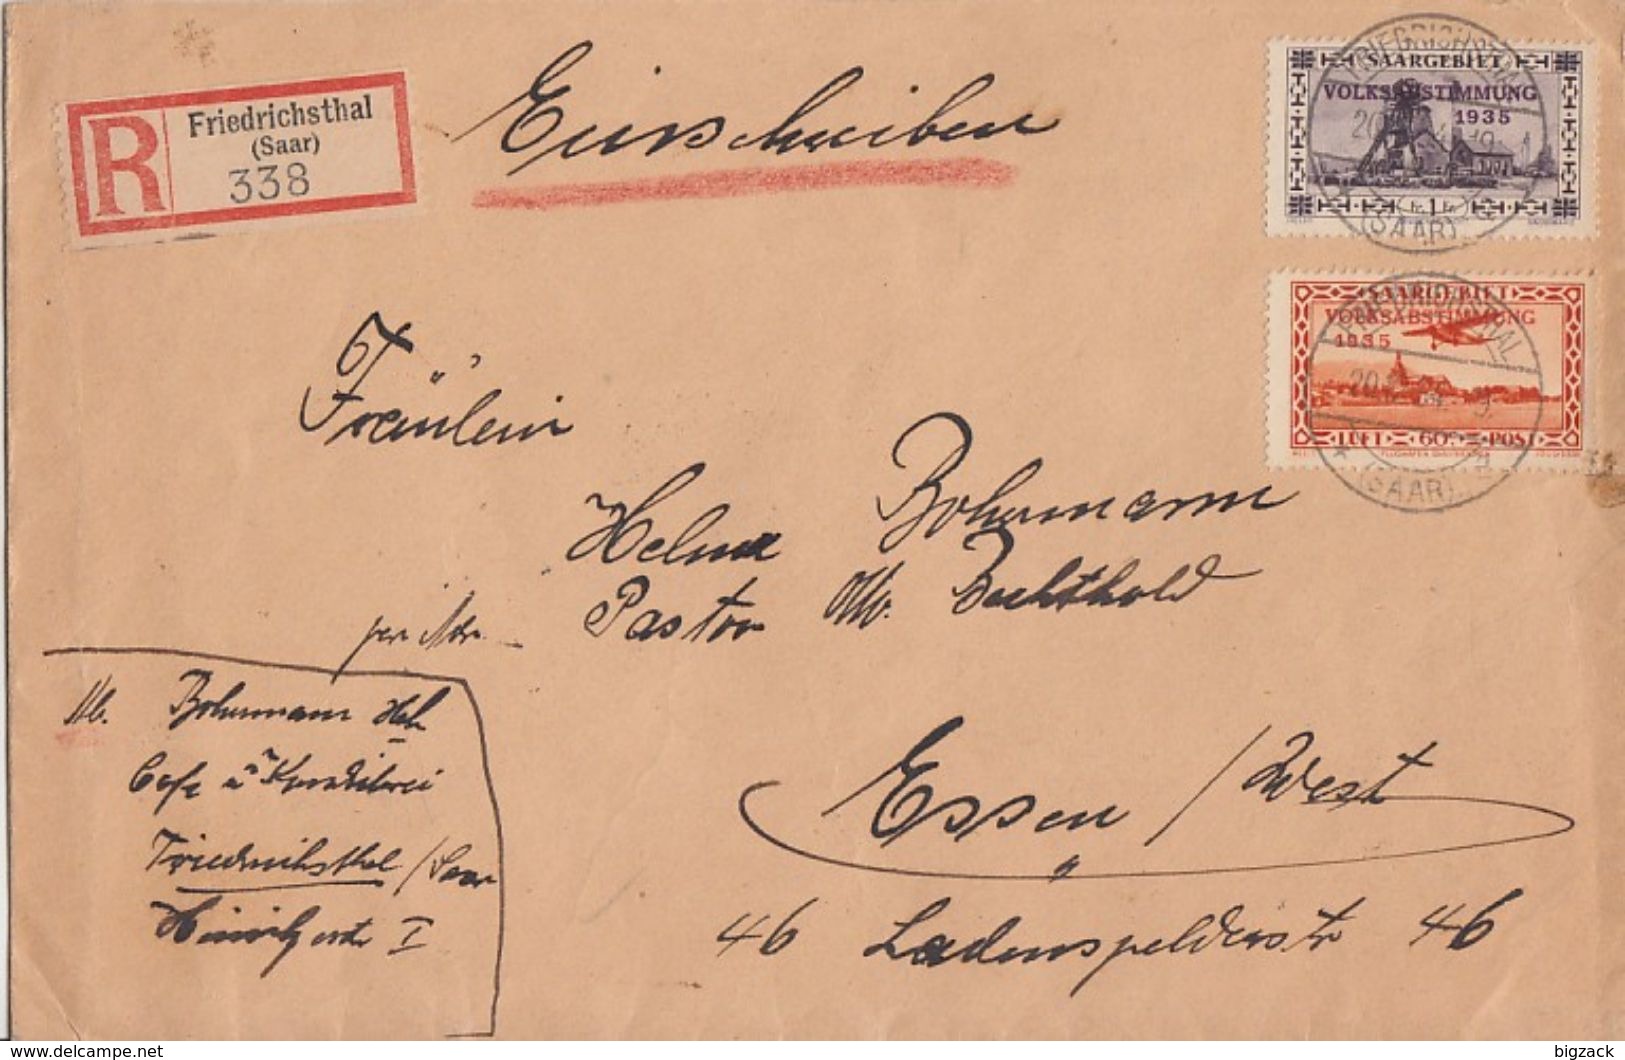 R
Friedrichsthal
(Saar)
338
Einschreiben
SAARGEBIET
VOLKSABSTIMMUNG
1935
FRIEDRICHSTHAL
(SAAR)
SAARGEBIET
VOLKSABSTIMMUNG
1935
LUFT 60c. POST
FRIEDRICHSTHAL
(SAAR)
Fräulein
Helma Bohrmann
per Adr. Pastor Otto Bechthold
Essen / West
46 Ladenspelderstr 46
Abs. Bohrmann
Cafe u Konditorei
Friedrichsthal / Saar
delcampe.net
bigzack